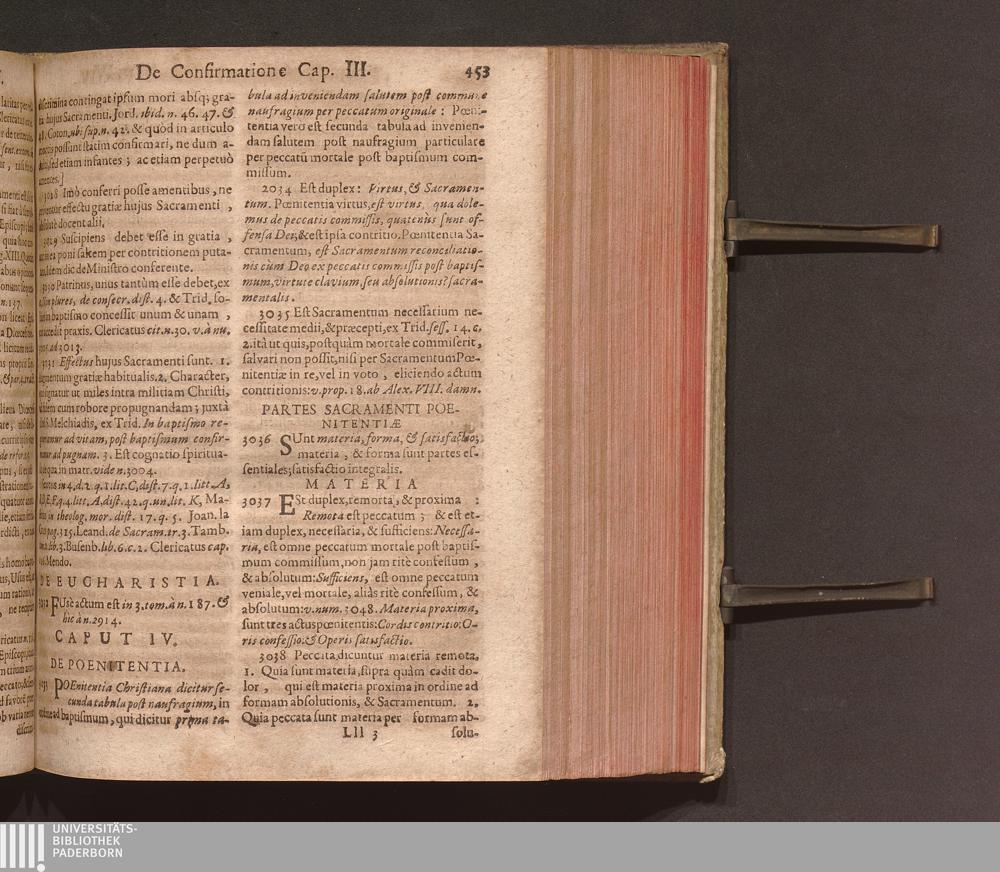 De Confirmatione Cap. III. 453
contingat ipsum mori absq; gra-
hujus Sacramenti. Jord. ibid. n. 46. 47. &
Coton. ubi sup. n. 42. & quòd in articulo
possunt statim confirmari, ne dum a-
sed etiam infantes; ac etiam perpetuò
amentes.]
3028 Imò conferri posse amentibus, ne
effectu gratiæ hujus Sacramenti,
docent alii.
3029 Suscipiens debet esse in gratia,
poni saltem per contritionem puta-
dic de Ministro conferente.
3030 Patrinus, unus tantùm esse debet, ex
plures, de consecr. dist. 4. & Trid. so-
baptismo concessit unum & unam,
accedit praxis. Clericatus cit. n. 30. v. à nu.
ad 3013.
3031 Effectus hujus Sacramenti sunt. 1.
augmentum gratiæ habitualis. 2. Character,
ut miles intra militiam Christi,
cum robore propugnandam; juxtà
Melchiadis, ex Trid. In baptismo re-
ad vitam, post baptismum confir-
ad pugnam. 3. Est cognatio spiritua-
in matr. vide n. 3004.
in 4. d. 2. q. 1. lit. C, dist. 7. q. 1. litt. A,
q. 4. litt. A, dist. 42. q. un. lit. K, Ma-
in theolog. mor. dist. 17. q. 5. Joan. la
pag. 315. Leand. de Sacram. tr. 3. Tamb.
lib. 3. Busenb. lib. 6. c. 2. Clericatus cap.
Mendo.
DE EUCHARISTIA.
3032 FUsè actum est in 3. tom. à n. 187. &
hic à n. 2914.
CAPUT IV.
DE POENITENTIA.
3033 POEnitentia Christiana dicitur se-
cunda tabula post naufragium, in
ad baptismum, qui dicitur prima ta-
bula ad inveniendam salutem post commune
naufragium per peccatum originale: Pœni-
tentia verò est secunda tabula ad invenien-
dam salutem post naufragium particulare
per peccatū mortale post baptismum com-
missum.
2034 Est duplex: Virtus, & Sacramen-
tum. Pœnitentia virtus, est virtus, qua dole-
mus de peccatis commissis, quatenus sunt of-
fensa Dei; & est ipsa contritio. Pœnitentia Sa-
cramentum, est Sacramentum reconciliatio-
nis cum Deo ex peccatis commissis post baptis-
mum, virtute clavium, seu absolutionis sacra-
mentalis.
3035 Est Sacramentum necessarium ne-
cessitate medii, & præcepti, ex Trid. sess. 14. c.
2. ità ut quis, postquàm mortale commiserit,
salvari non possit, nisi per Sacramentum Pœ-
nitentiæ in re, vel in voto, eliciendo actum
contritionis: v. prop. 18. ab Alex. VIII. damn.
PARTES SACRAMENTI POE-
NITENTIÆ
3036 SUnt materia, forma, & satisfactio;
materia, & forma sunt partes es-
sentiales; satisfactio integralis.
MATERIA
3037 ESt duplex, remota, & proxima:
Remota est peccatum; & est et-
iam duplex, necessaria, & sufficiens: Necessa-
ria, est omne peccatum mortale post baptis-
mum commissum, non jam ritè confessum,
& absolutum: Sufficiens, est omne peccatum
veniale, vel mortale, aliàs ritè confessum, &
absolutum: v. num. 3048. Materia proxima,
sunt tres actus pœnitentis: Cordis contritio: O-
ris confessio: & Operis satisfactio.
3038 Peccata dicuntur materia remota.
1. Quia sunt materia, supra quàm cadit do-
lor, qui est materia proxima in ordine ad
formam absolutionis, & Sacramentum. 2.
Quia peccata sunt materia per formam ab-
Lll 3 solu-
UNIVERSITÄTS-
BIBLIOTHEK
PADERBORN